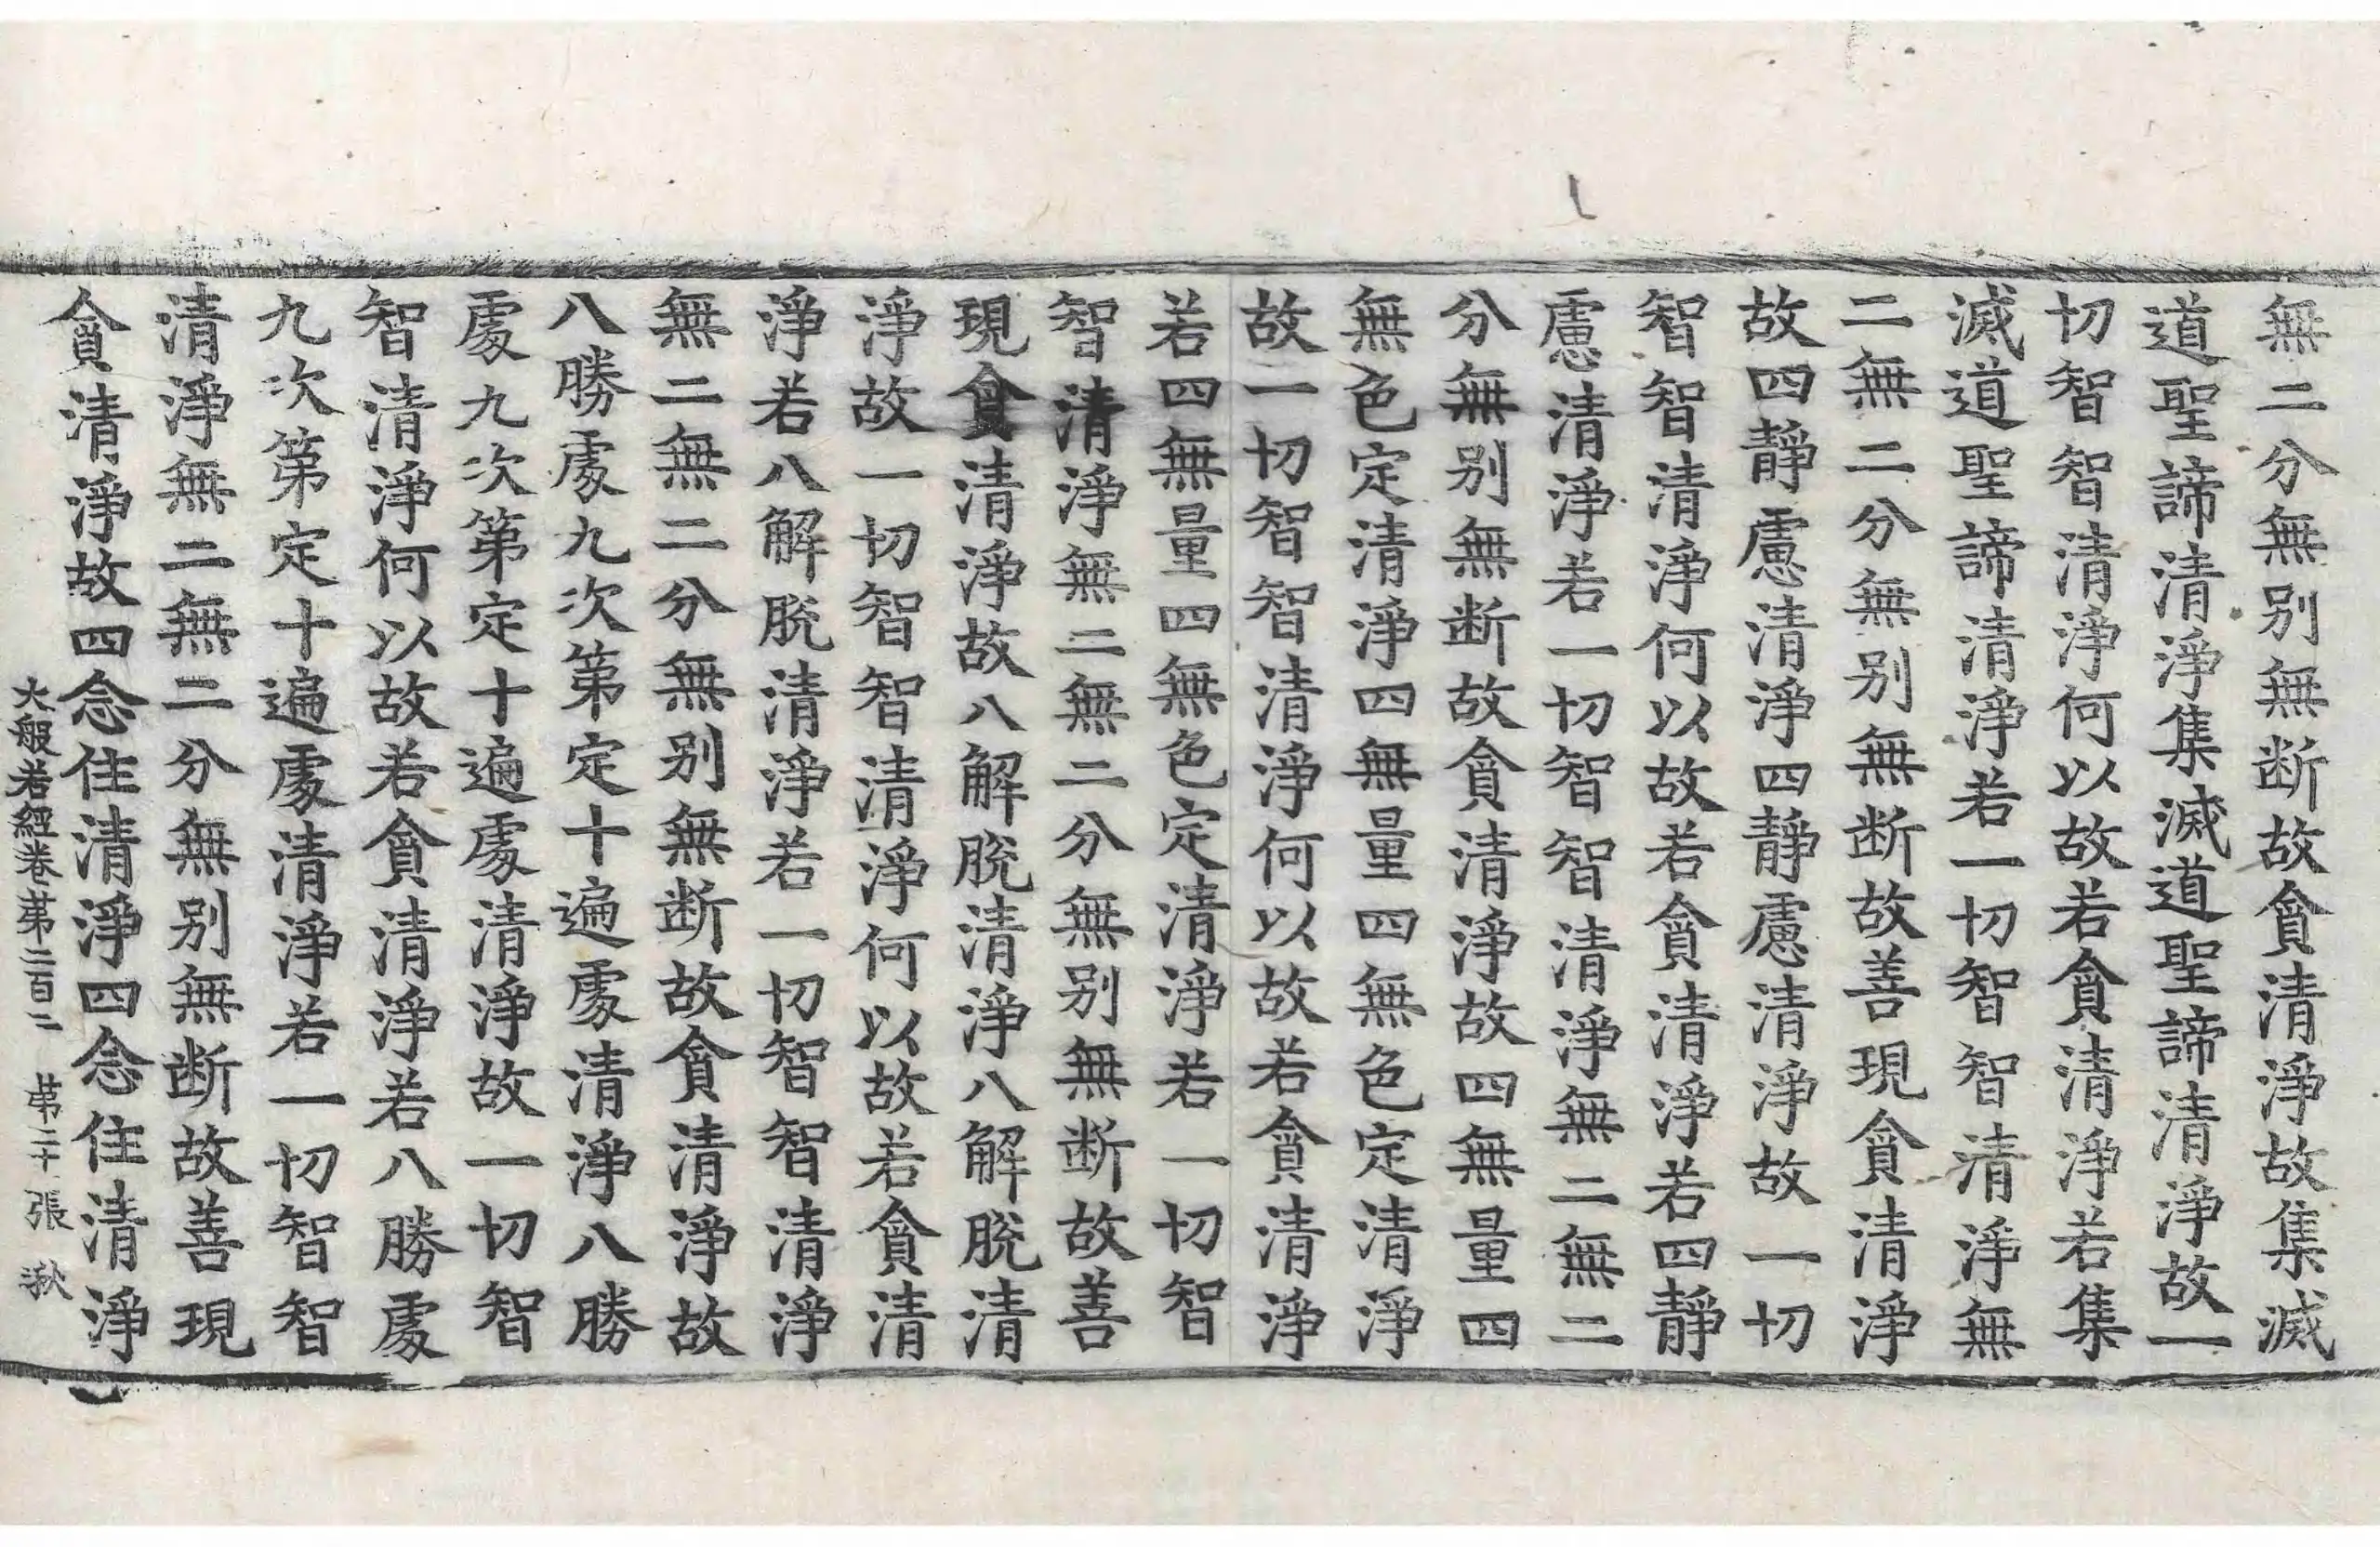 無二分無别無断故貪清淨故集滅
道聖諦清淨集滅道聖諦清淨故一
切智智清淨何以故若貪清淨若集
滅道聖諦清淨若一切智智清淨無
二無二分無别無断故善現貪清淨
故四靜慮清淨四靜慮清淨故一切
智智清淨何以故若貪清淨若四靜
慮清淨若一切智智清淨無二無二
分無别無断故貪清淨故四無量四
無色定清淨四無量四無色定清淨
故一切智智清淨何以故若貪清淨
若四無量四無色定清淨若一切智
智清淨無二無二分無别無断故善
現貪清淨故八解脫清淨八解脫清
淨故一切智智清淨何以故若貪清
淨若八解脫清淨若一切智智清淨
無二無二分無别無断故貪清淨故
八勝處九次第定十遍處清淨八勝
處九次第定十遍處清淨故一切智
智清淨何以故若貪清淨若八勝處
九次第定十遍處清淨若一切智智
清淨無二無二分無别無断故善現
貪清淨故四念住清淨四念住清淨
大般若經卷苐二百二 苐二十張 湫